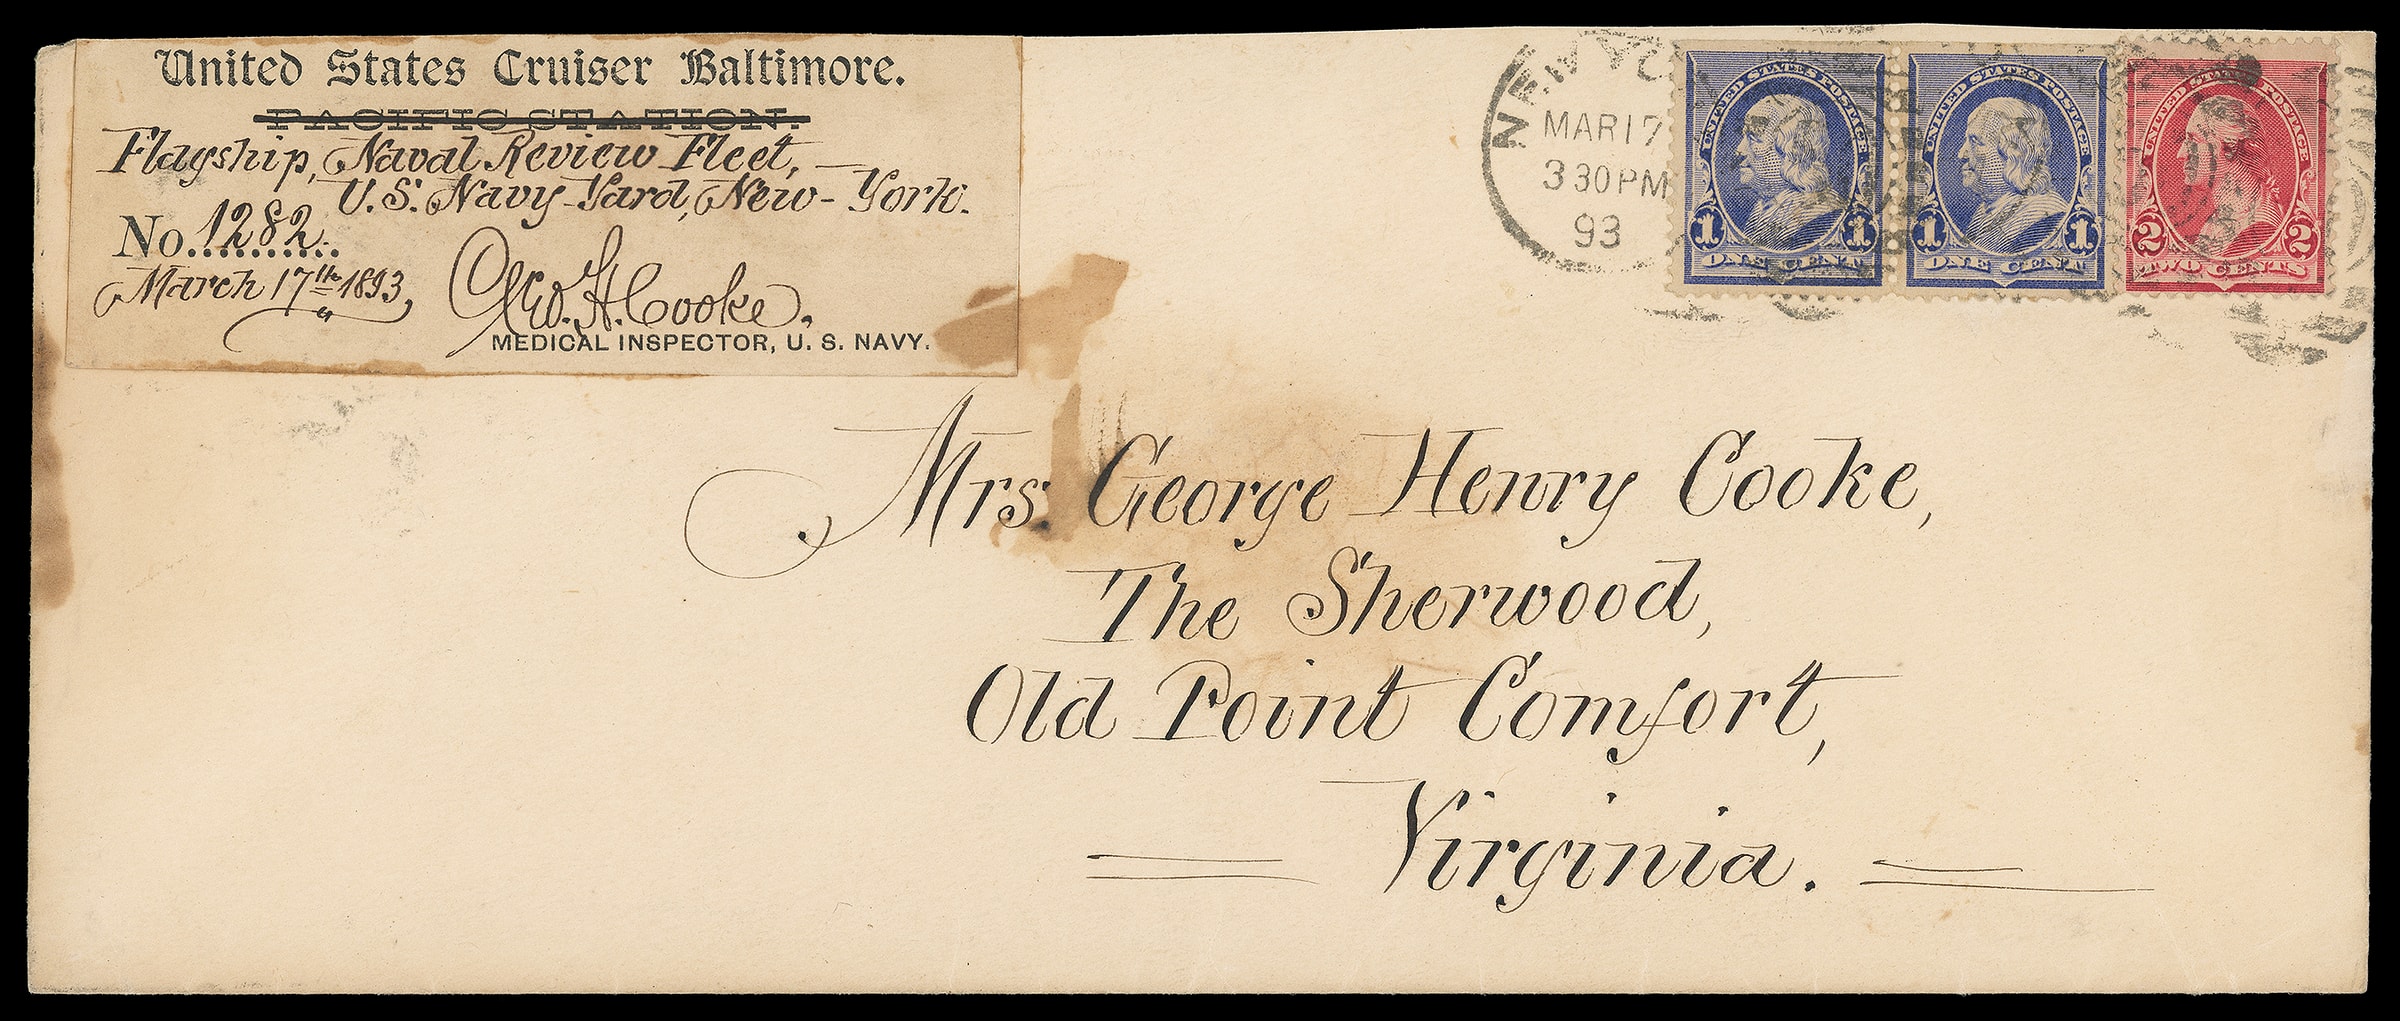 United States Cruiser Baltimore.
PACIFIC STATION.
Flagship, Naval Review Fleet,
U.S. Navy-Yard, New-York.
No. 1282.
March 17th 1893,
Geo. H. Cooke.
MEDICAL INSPECTOR, U. S. NAVY.
NEW YO
MAR 17
3 30 PM
93
UNITED STATES POSTAGE
1 1
ONE CENT
UNITED STATES POSTAGE
1 1
ONE CENT
UNITED STATES POSTAGE
2 2
TWO CENTS
Mrs. George Henry Cooke,
The Sherwood,
Old Point Comfort,
Virginia.